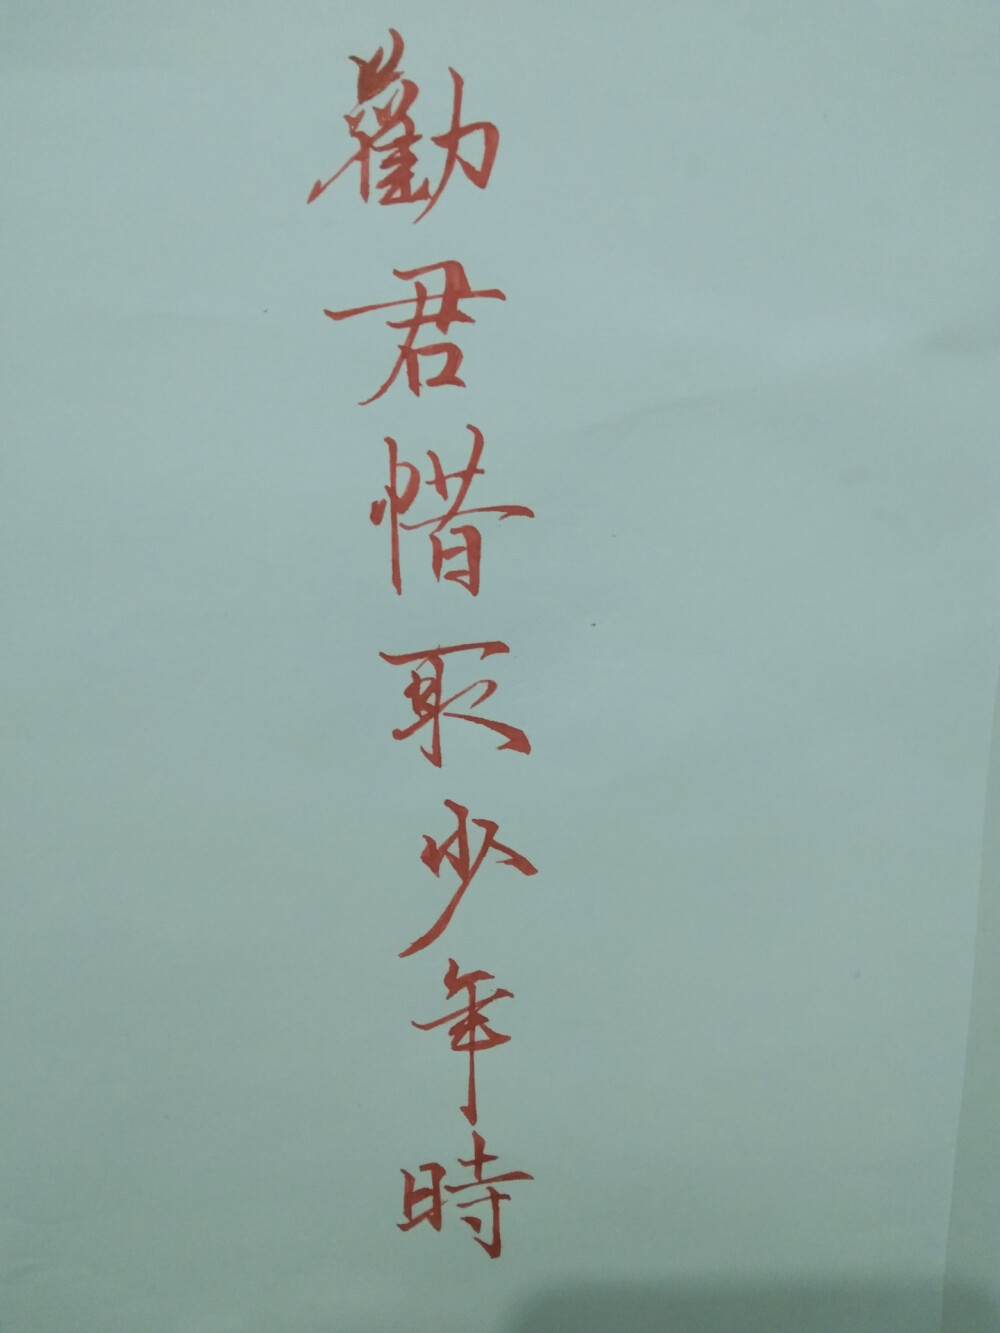 勸君惜取少年時